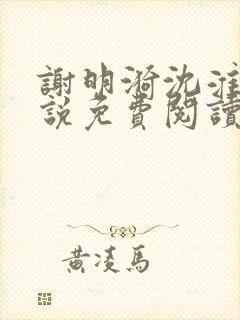 謝明漪沈淮
說免費閱讀
黃凌馬